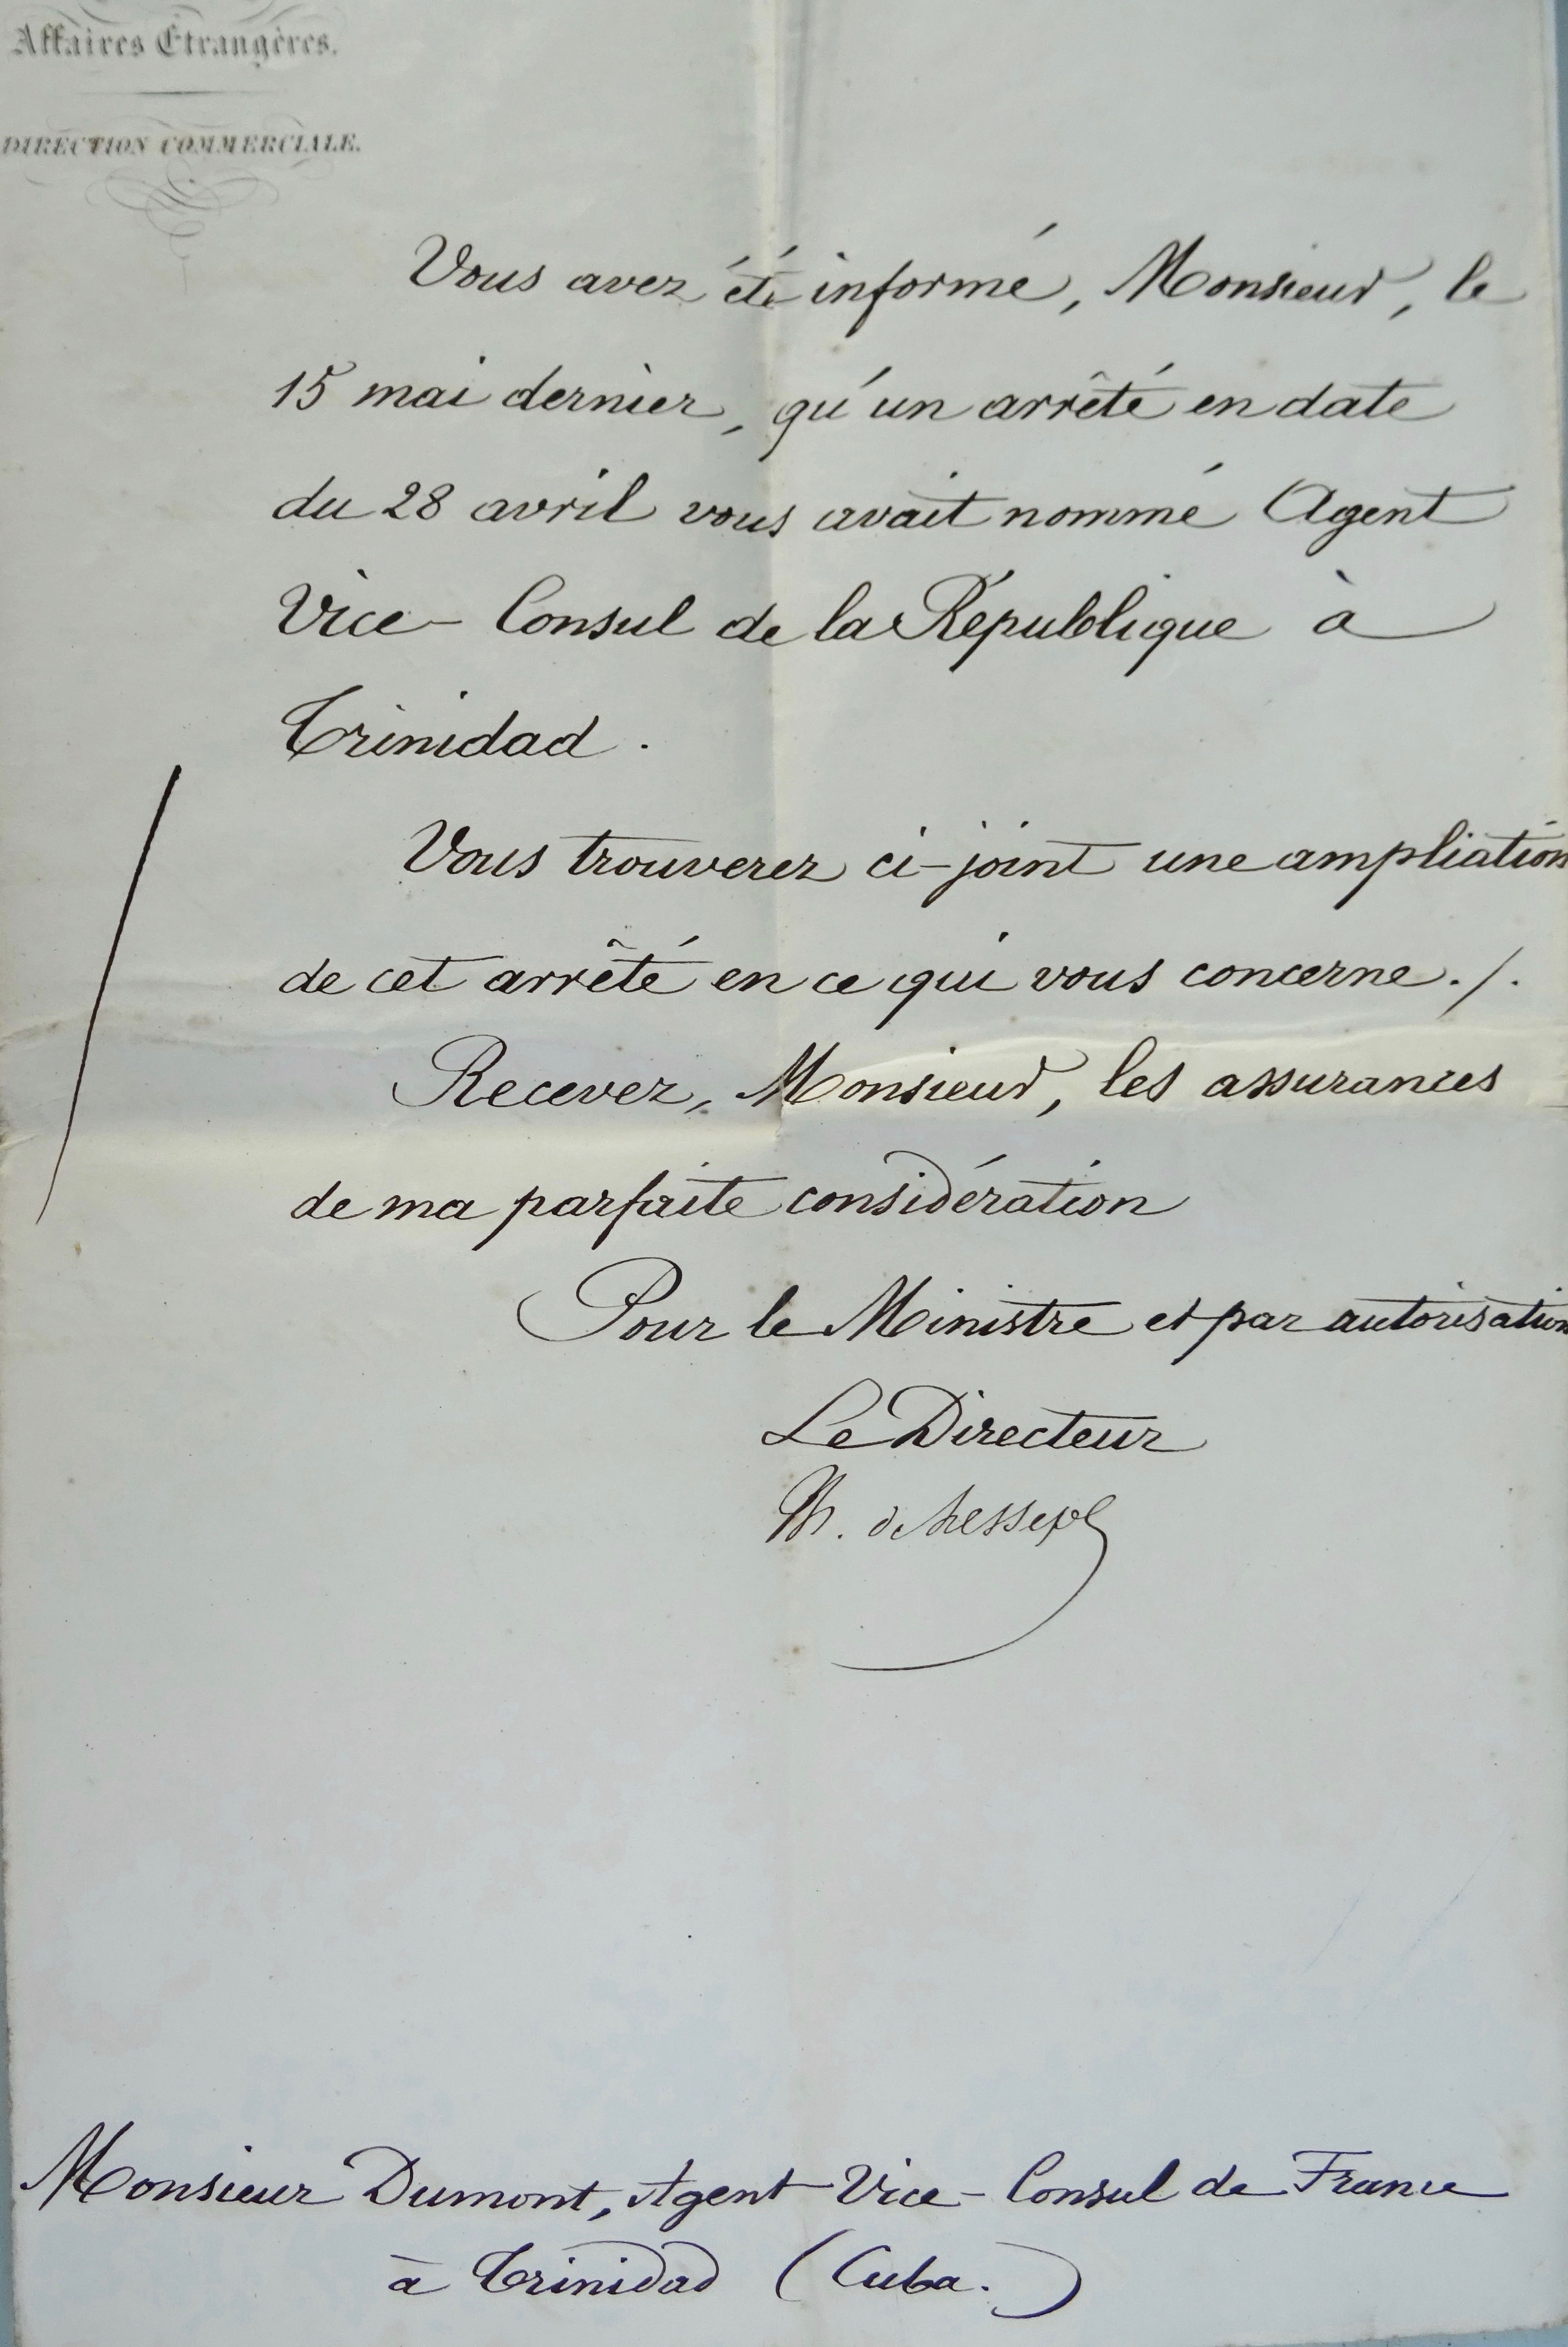 Affaires Étrangères.
DIRECTION COMMERCIALE.
Vous avez été informé, Monsieur, le
15 mai dernier, qu'un arrêté en date
du 28 avril vous avait nommé Agent
Vice-Consul de la République à
Trinidad.
Vous trouverez ci-joint une ampliation
de cet arrêté en ce qui vous concerne./.
Recevez, Monsieur, les assurances
de ma parfaite considération
Pour le Ministre et par autorisation
Le Directeur
de Lesseps
Monsieur Dumont, Agent Vice-Consul de France
à Trinidad (Cuba.)